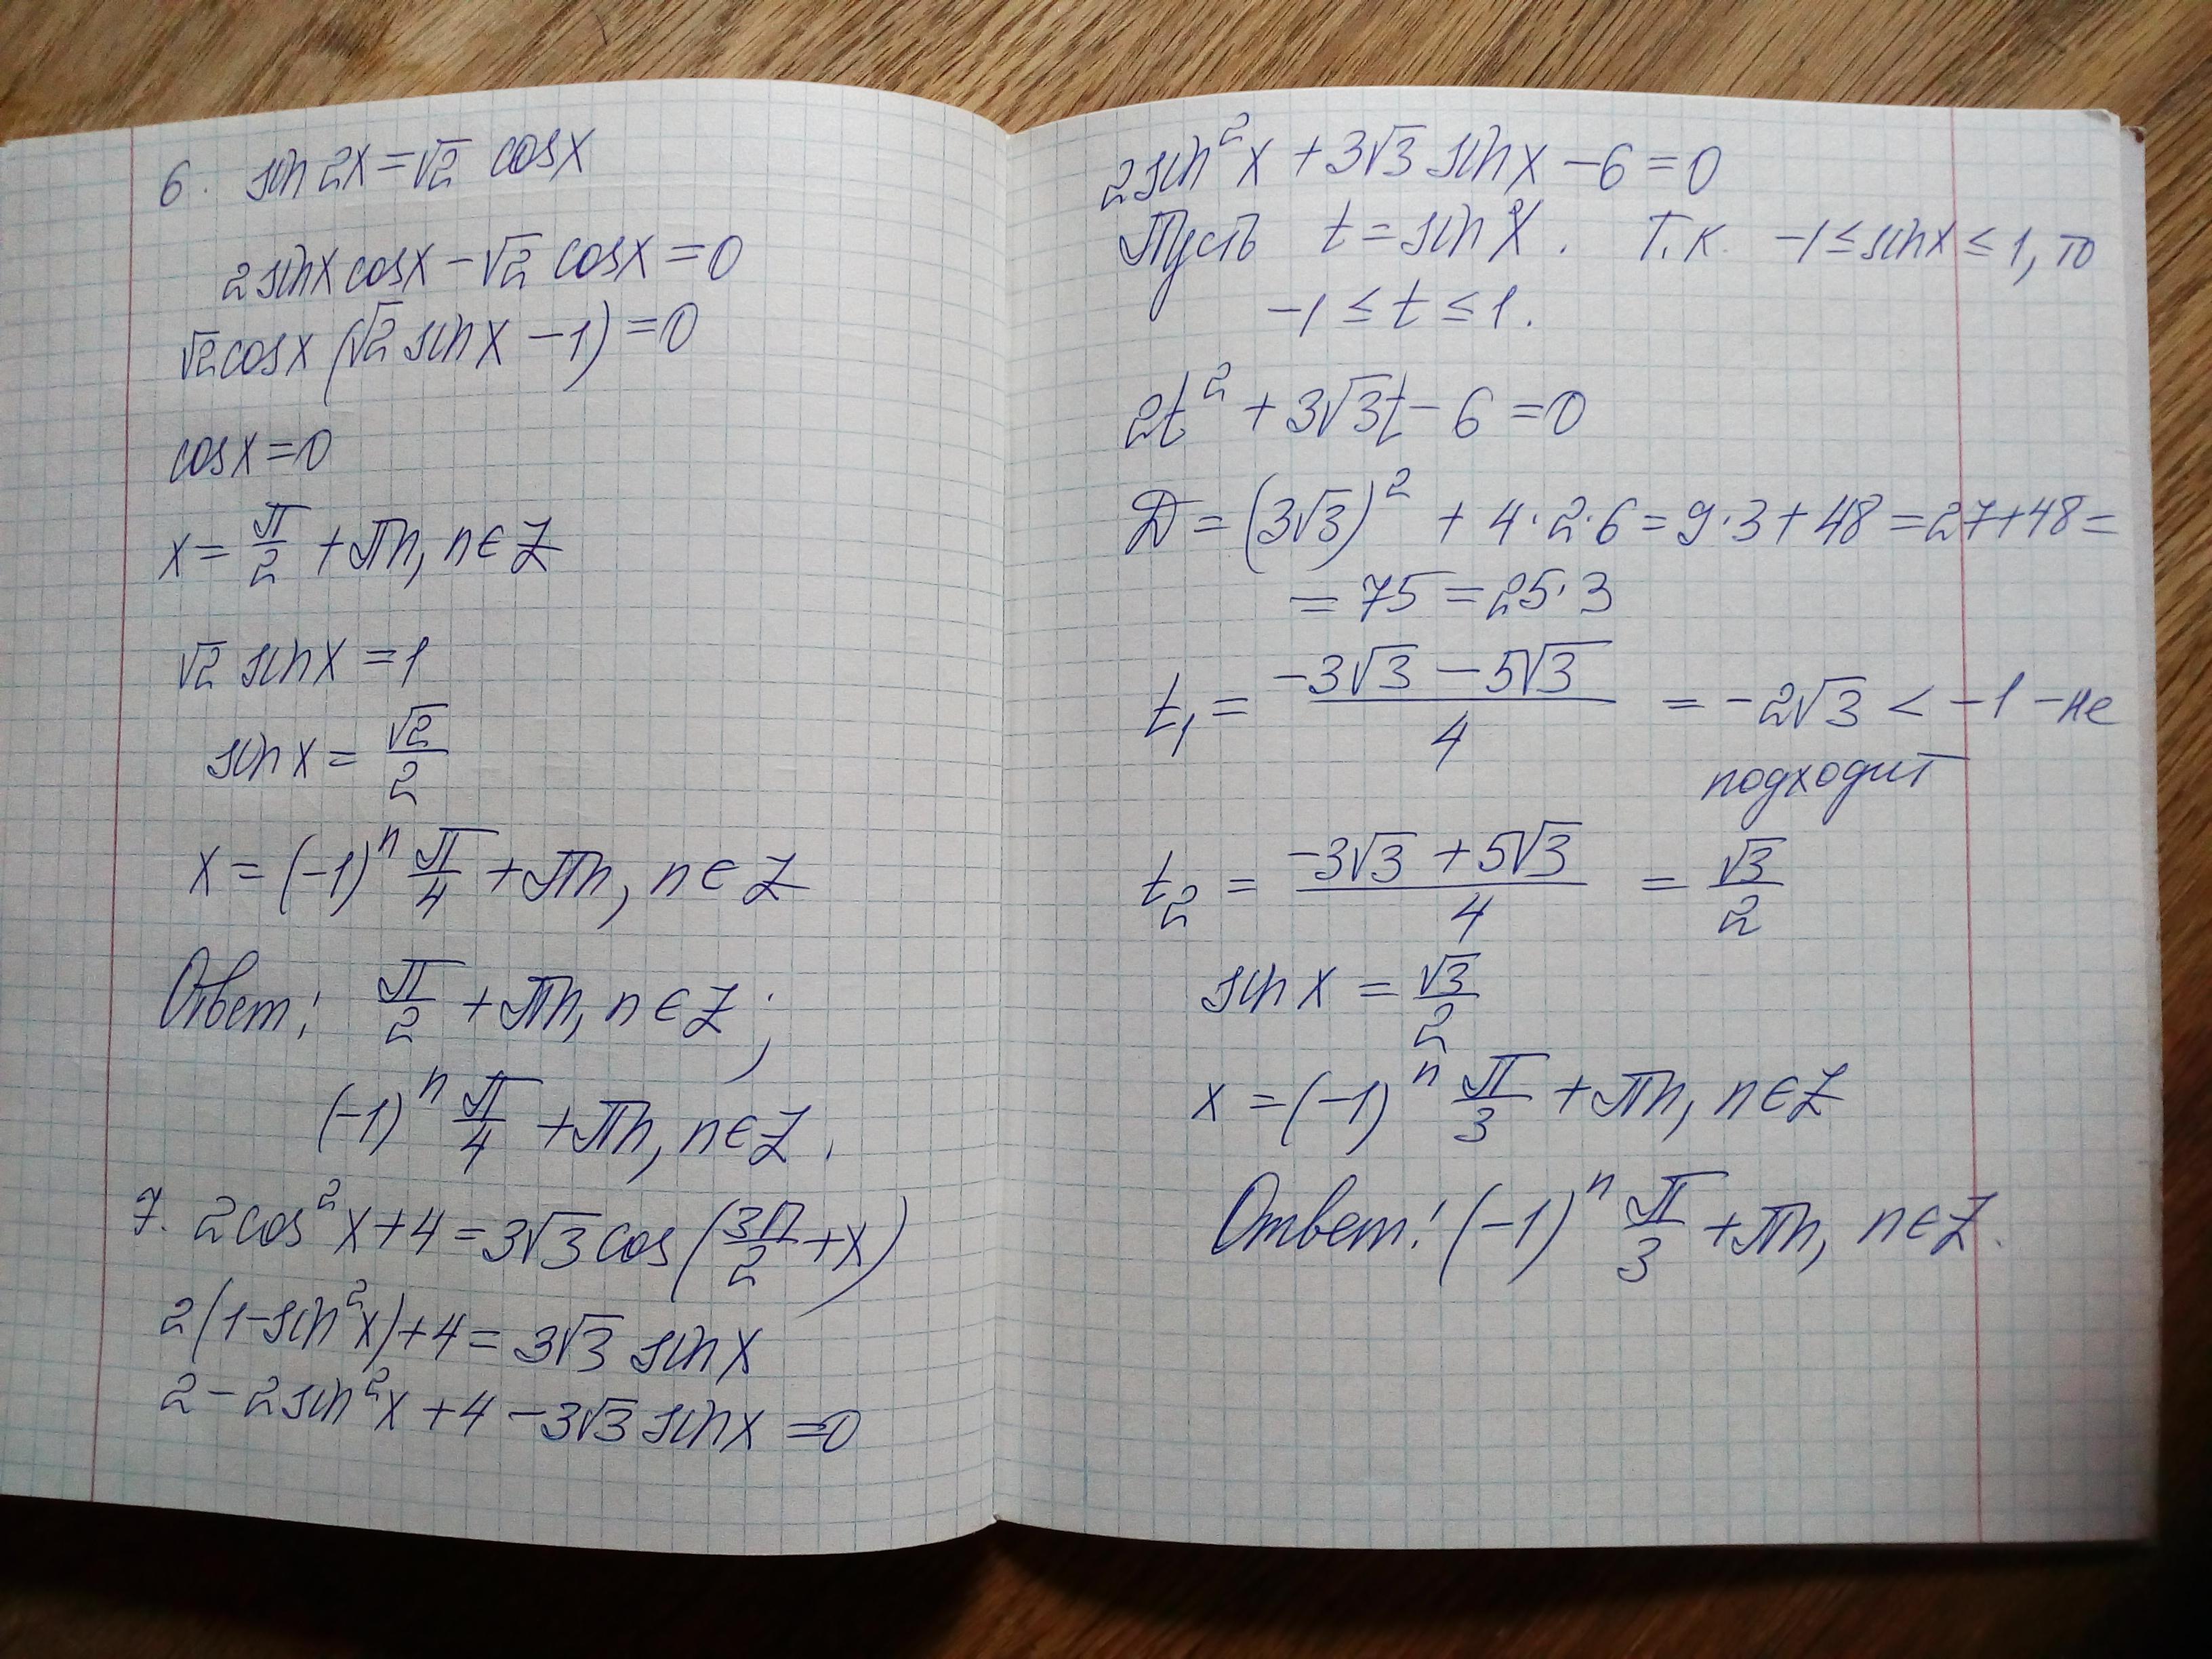 6. sin 2x = √2 cos x
2 sin x cos x − √2 cos x = 0
√2 cos x (√2 sin x − 1) = 0
cos x = 0
x = π/2 + πn, n ∈ Z
√2 sin x = 1
sin x = √2/2
x = (−1)ⁿ π/4 + πn, n ∈ Z
Ответ: π/2 + πn, n ∈ Z;
(−1)ⁿ π/4 + πn, n ∈ Z.
7. 2cos²x + 4 = 3√3 cos(3π/2 + x)
2(1 − sin²x) + 4 = 3√3 sin x
2 − 2sin²x + 4 − 3√3 sin x = 0
2sin²x + 3√3 sin x − 6 = 0
Пусть t = sin x. Т.к. −1 ≤ sin x ≤ 1, то
−1 ≤ t ≤ 1.
2t² + 3√3t − 6 = 0
D = (3√3)² + 4·2·6 = 9·3 + 48 = 27 + 48 =
= 75 = 25·3
t₁ = (−3√3 − 5√3)/4 = −2√3 < −1 − не
подходит
t₂ = (−3√3 + 5√3)/4 = √3/2
sin x = √3/2
x = (−1)ⁿ π/3 + πn, n ∈ Z
Ответ: (−1)ⁿ π/3 + πn, n ∈ Z.